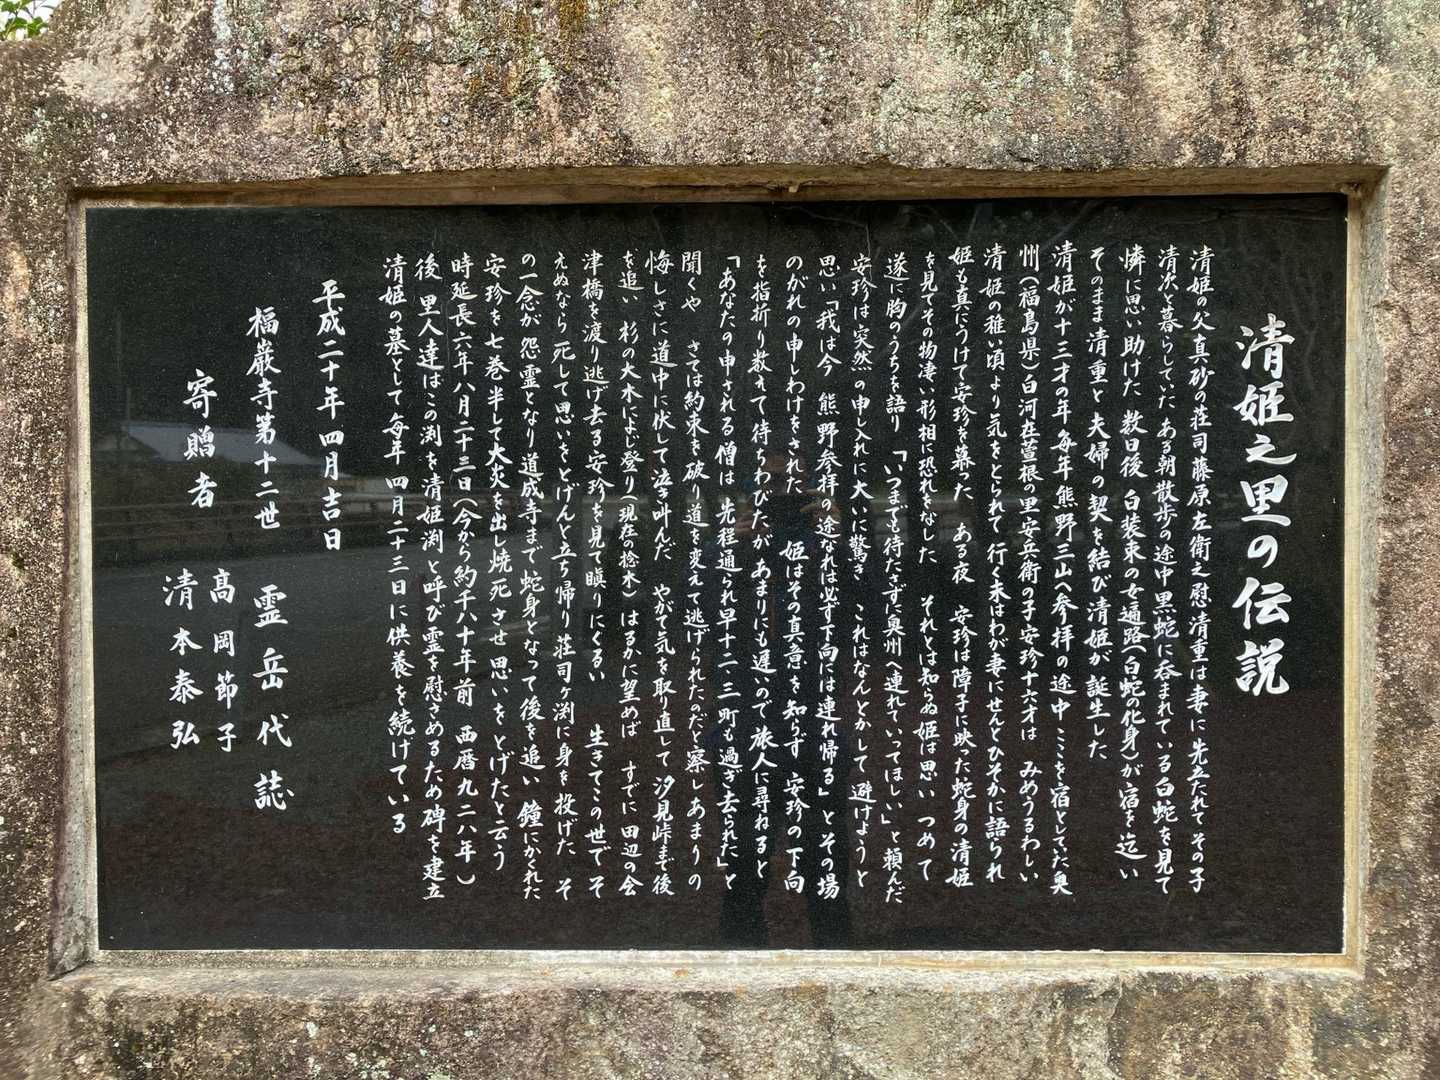 清姫之里の伝説
清姫の父真砂の荘司藤原左衛之慰清重は妻に先立たれてその子
清次と暮らしていた ある朝散歩の途中黒蛇に呑まれている白蛇を見て
憐に思い助けた 数日後 白装束の女遍路(白蛇の化身)が宿を迄い
そのまま清重と夫婦の契を結び清姫が誕生した
清姫が十三才の年毎年熊野三山へ参拝の途中ここを宿としていた奥
州(福島県)白河在萱根の里安兵衛の子安珍十六才は みめうるわしい
清姫の稚い頃より気をとられて 行く末はわが妻にせんとひそかに語られ
姫も真にうけて安珍を慕った ある夜 安珍は障子に映った蛇身の清姫
を見てその物凄い形相に恐れをなした それとは知らぬ姫は思い つめて
遂に胸のうちを語り 「いつまでも待たさずに奥州へ連れていってほしい」と頼んだ
安珍は突然の申し入れに大いに驚き これはなんとかして避けようと
思い「我は今 熊野参拝の途なれば必ず下向には連れ帰る」とその場
のがれの申しわけをされた 姫はその真意を知らず 安珍の下向
を指折り数えて待ちわびたが あまりにも遅いので旅人に尋ねると
「あなたの申される僧は 先程通られ早十二・三町も過ぎ去られた」と
聞くや さては約束を破り道を変えて逃げられたのだと察しあまりの
悔しさに道中に伏して泣き叫んだ やがて気を取り直して汐見峠まで後
を追い 杉の大木によじ登り(現在捻木)はるかに望めば すでに田辺の会
津橋を渡り逃げ去る安珍を見て瞋りにくるい 生きてこの世でそ
えぬなら 死して思いをとげんと立ち帰り荘司ヶ渕に身を投げた そ
の一念が 怨霊となり道成寺まで蛇身となって後を追い 鐘にかくれた
安珍を七巻半して大炎を出し焼死させ思いをとげたと云う
時延長六年八月二十三日(今から約千八十年前 西暦九二八年)
後 里人達はこの渕を清姫渕と呼び霊を慰さめるため碑を建立
清姫の墓として毎年 四月二十三日に供養を続けている
平成二十年四月吉日
福巌寺第十二世 霊岳代誌
寄贈者 高岡節子
清本泰弘